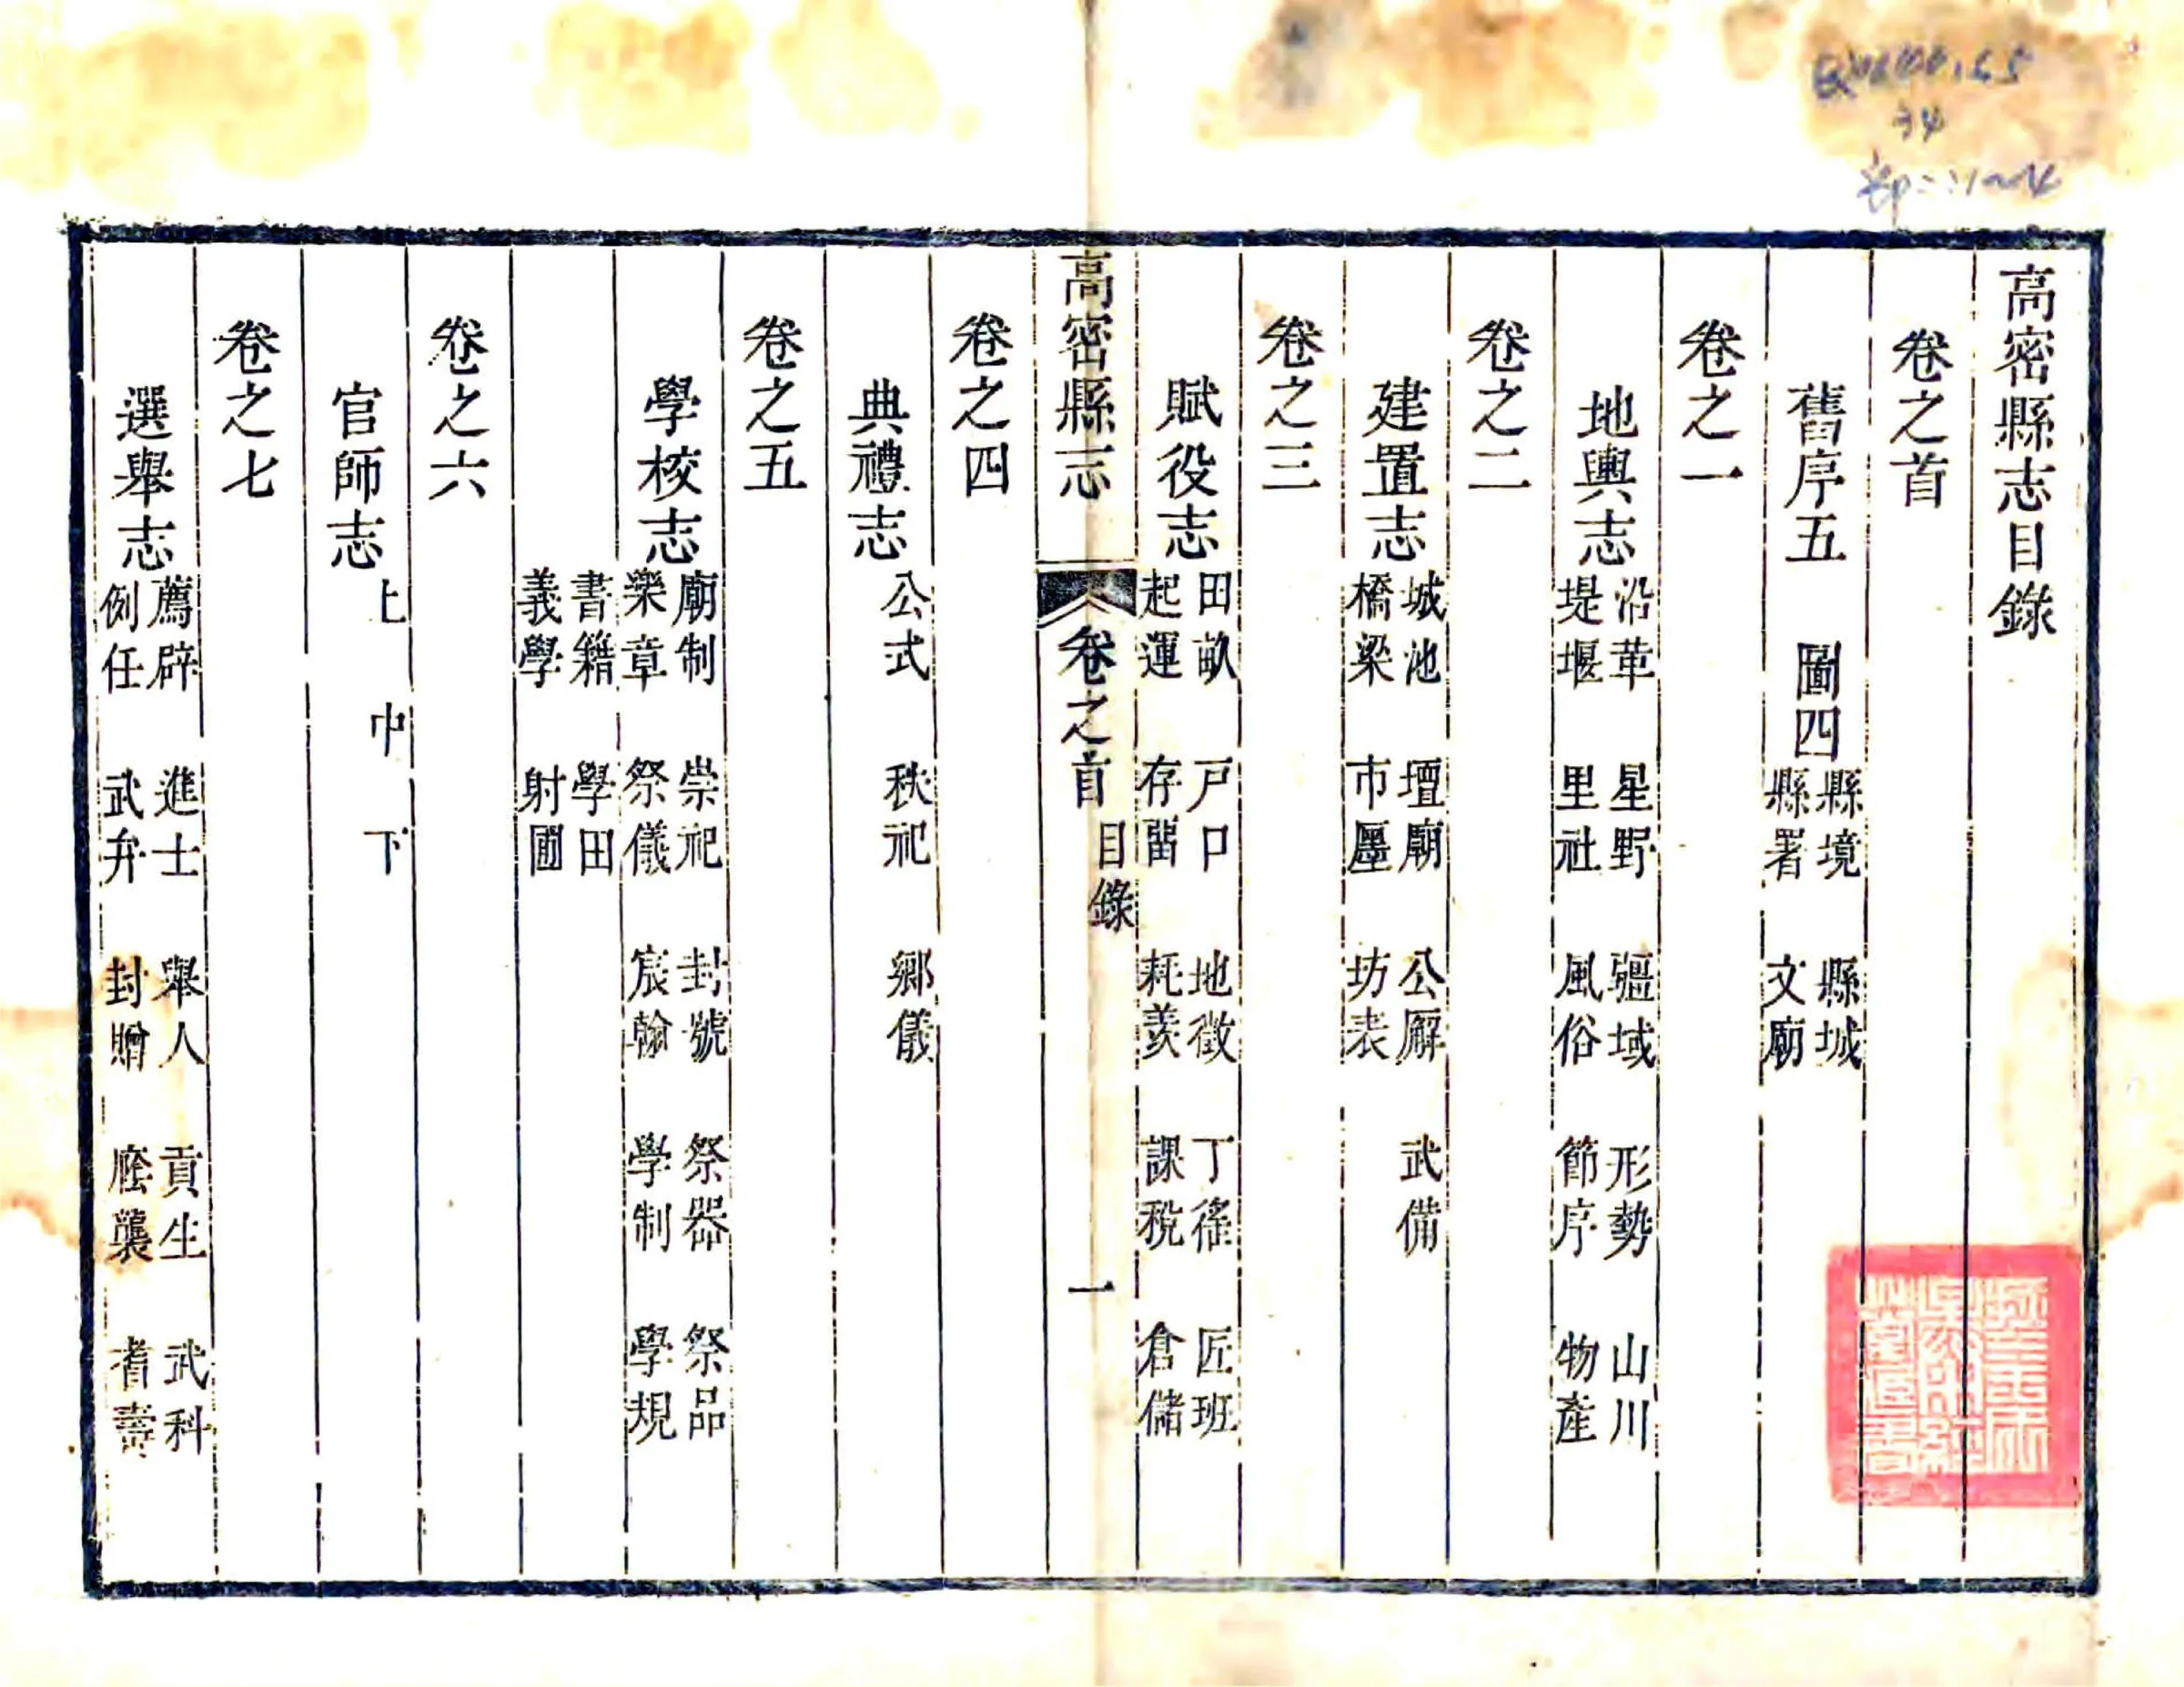 高密縣志目錄
卷之首
舊序五 圖四 縣境 縣城
縣署 文廟
卷之一
地輿志 沿革 星野 疆域 形勢 山川
堤堰 里社 風俗 節序 物產
卷之二
建置志 城池 壇廟 公廨 武備
橋梁 市廛 坊表
卷之三
賦役志 田畝 戸口 地徵 丁徭 匠班
起運 存留 耗羨 課稅 倉儲
高密縣志 卷之首 目錄 一
卷之四
典禮志 公式 秩祀 鄉儀
卷之五
學校志 廟制 崇祀 封號 祭器 祭品
樂章 祭儀 宸翰 學制 學規
書籍 學田
義學 射圃
卷之六
官師志 上 中 下
卷之七
選舉志 薦辟 進士 舉人 貢生 武科
例任 武弁 封贈 廕襲 耆壽
34